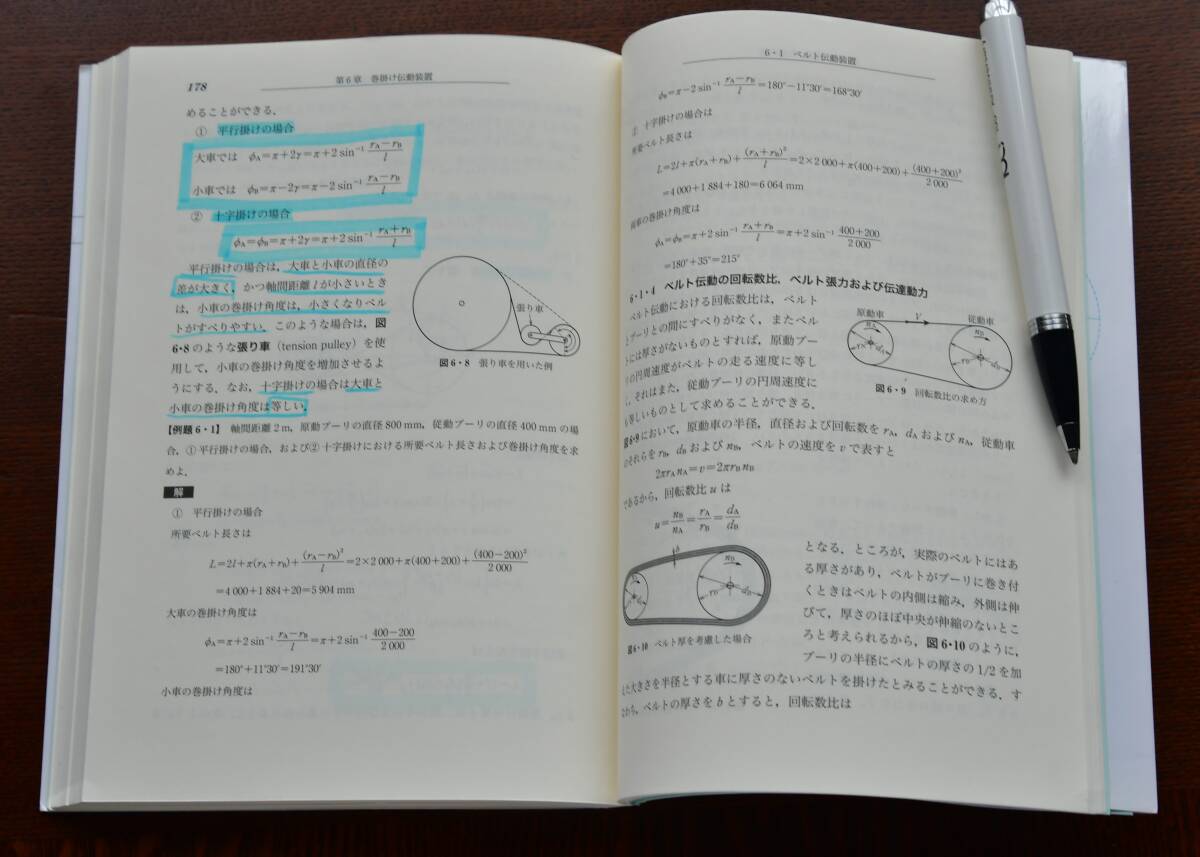 178
第6章 巻掛け伝動装置
めることができる.
① 平行掛けの場合
大車では φA=π+2γ=π+2 sin⁻¹ (rA−rB)/l
小車では φB=π−2γ=π−2 sin⁻¹ (rA−rB)/l
② 十字掛けの場合
φA=φB=π+2γ=π+2 sin⁻¹ (rA+rB)/l
平行掛けの場合は, 大車と小車の直径の
差が大きく, かつ軸間距離 l が小さいとき
は, 小車の巻掛け角度は, 小さくなりベル
トがすべりやすい. このような場合は, 図
6・8のような張り車 (tension pulley) を使
用して, 小車の巻掛け角度を増加させるよ
うにする. なお, 十字掛けの場合は大車と
小車の巻掛け角度は等しい.
張り車
図6・8 張り車を用いた例
【例題6・1】 軸間距離 2 m, 原動プーリの直径 800 mm, 従動プーリの直径 400 mm の場
合, ①平行掛けの場合, および②十字掛けにおける所要ベルト長さおよび巻掛け角度を求
めよ.
解
① 平行掛けの場合
所要ベルト長さは
L=2l+π(rA+rB)+(rA−rB)²/l=2×2 000+π(400+200)+(400−200)²/2 000
=4 000+1 884+20=5 904 mm
大車の巻掛け角度は
φA=π+2 sin⁻¹ (rA−rB)/l=π+2 sin⁻¹ (400−200)/2 000
=180°+11°30′=191°30′
小車の巻掛け角度は
6・1 ベルト伝動装置
φB=π−2 sin⁻¹ (rA−rB)/l=180°−11°30′=168°30′
② 十字掛けの場合は
所要ベルト長さは
L=2l+π(rA+rB)+(rA+rB)²/l=2×2 000+π(400+200)+(400+200)²/2 000
=4 000+1 884+180=6 064 mm
両車の巻掛け角度は
φA=φB=π+2 sin⁻¹ (rA+rB)/l=π+2 sin⁻¹ (400+200)/2 000
=180°+35°=215°
6・1・4 ベルト伝動の回転数比, ベルト張力および伝達動力
ベルト伝動における回転数比は, ベルト
とプーリとの間にすべりがなく, またベル
トには厚さがないものとすれば, 原動プー
リの円周速度がベルトの走る速度に等し
く, それはまた, 従動プーリの円周速度に
も等しいものとして求めることができる.
原動車
V
従動車
nA
nB
rA
dA
rB
dB
図6・9 回転数比の求め方
図6・9において, 原動車の半径, 直径および回転数を rA, dA および nA, 従動車
のそれらを rB, dB および nB, ベルトの速度を v で表すと
2πrA nA=v=2πrB nB
であるから, 回転数比 u は
u=nB/nA=rA/rB=dA/dB
b
nB
rB
dB
図6・10 ベルト厚を考慮した場合
となる. ところが, 実際のベルトにはあ
る厚さがあり, ベルトがプーリに巻き付
くときはベルトの内側は縮み, 外側は伸
びて, 厚さのほぼ中央が伸縮のないとこ
ろと考えられるから, 図6・10のように,
プーリの半径にベルトの厚さの 1/2 を加
えた大きさを半径とする車に厚さのないベルトを掛けたとみることができる. す
なわち, ベルトの厚さを b とすると, 回転数比は